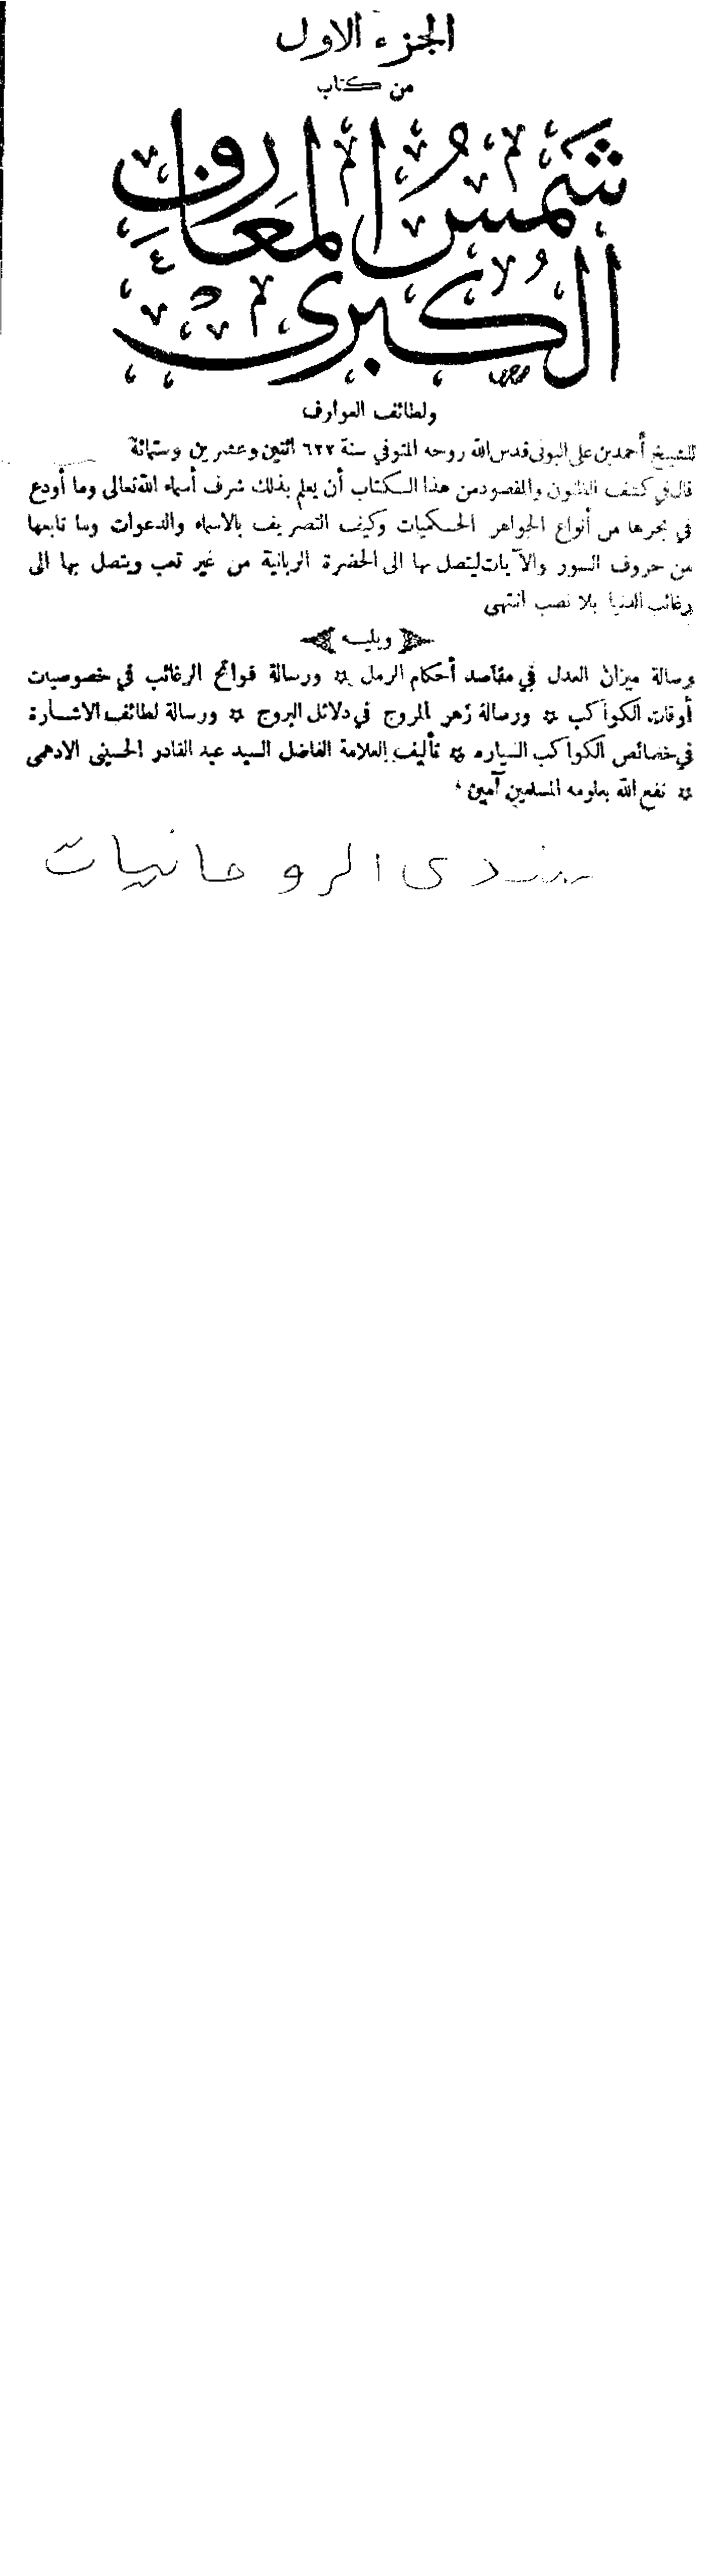 الجزء الاول
من كتاب
شمس المعارف
الكبرى
ولطائف العوارف
للشيخ أحمد بن على البونى قدس الله روحه المتوفي سنة ٦٢٢ اثنين وعشرين وستمائة
قال في كشف الظنون والمقصود من هذا الكتاب أن يعلم بذلك شرف أسماء الله تعالى وما أودع
في بحرها من أنواع الجواهر الحكميات وكيف التصريف بالاسماء والدعوات وما تابعها
من حروف السور والآيات ليتصل بها الى الحضرة الربانية من غير تعب ويتصل بها الى
رغائب الدنيا بلا نصب انتهى
ويليه
رسالة ميزان العدل في مقاصد أحكام الرمل ۞ ورسالة فواتح الرغائب في خصوصيات
أوقات الكواكب ۞ ورسالة زهر المروج في دلائل البروج ۞ ورسالة لطائف الاشارة
في خصائص الكواكب السياره ۞ تأليف العلامة الفاضل السيد عبد القادر الحسينى الادهمى
۞ نفع الله بعلومه المسلمين آمين
منتدى الروحانيات